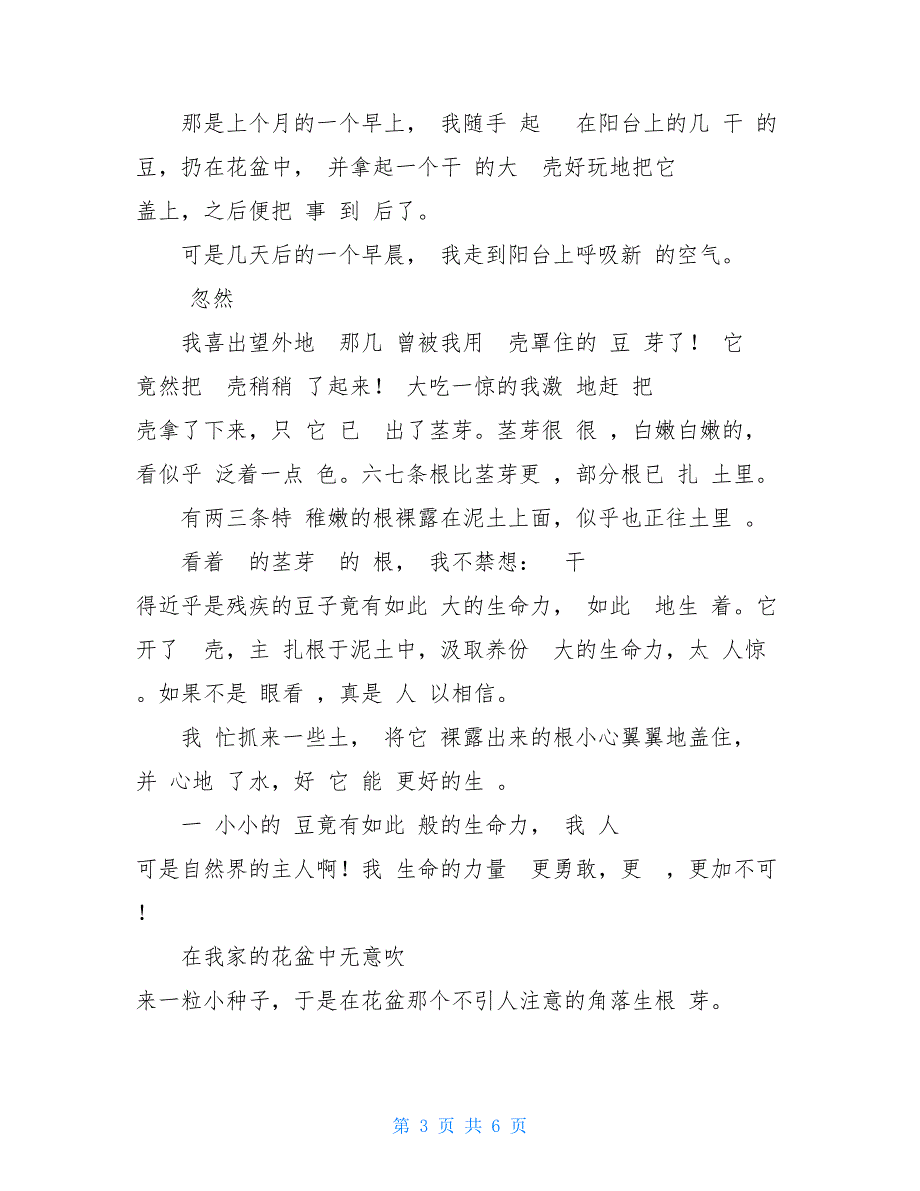 那是上个月的一个早上， 我随手 起   在阳台上的几 干 的
豆，扔在花盆中， 并拿起一个干 的大  壳好玩地把它
盖上，之后便把 事 到 后了。
可是几天后的一个早晨， 我走到阳台上呼吸新 的空气。
忽然
我喜出望外地  那几 曾被我用  壳罩住的 豆 芽了！ 它
竟然把  壳稍稍 了起来！ 大吃一惊的我激 地赶 把
壳拿了下来，只 它 已  出了茎芽。茎芽很 很 ，白嫩白嫩的，
看似乎 泛着一点 色。六七条根比茎芽更 ，部分根已 扎 土里。
有两三条特 稚嫩的根裸露在泥土上面，似乎也正往土里 。
看着  的茎芽  的 根， 我不禁想：  干
得近乎是残疾的豆子竟有如此 大的生命力， 如此  地生 着。它
开了  壳，主 扎根于泥土中，汲取养份  大的生命力，太 人惊
。如果不是 眼看 ，真是 人 以相信。
我 忙抓来一些土， 将它 裸露出来的根小心翼翼地盖住，
并 心地 了水，好 它 能 更好的生 。
一 小小的 豆竟有如此 般的生命力， 我 人
可是自然界的主人啊！我 生命的力量  更勇敢，更  ，更加不可
！
在我家的花盆中无意吹
来一粒小种子，于是在花盆那个不引人注意的角落生根 芽。
第 3 页 共 6 页